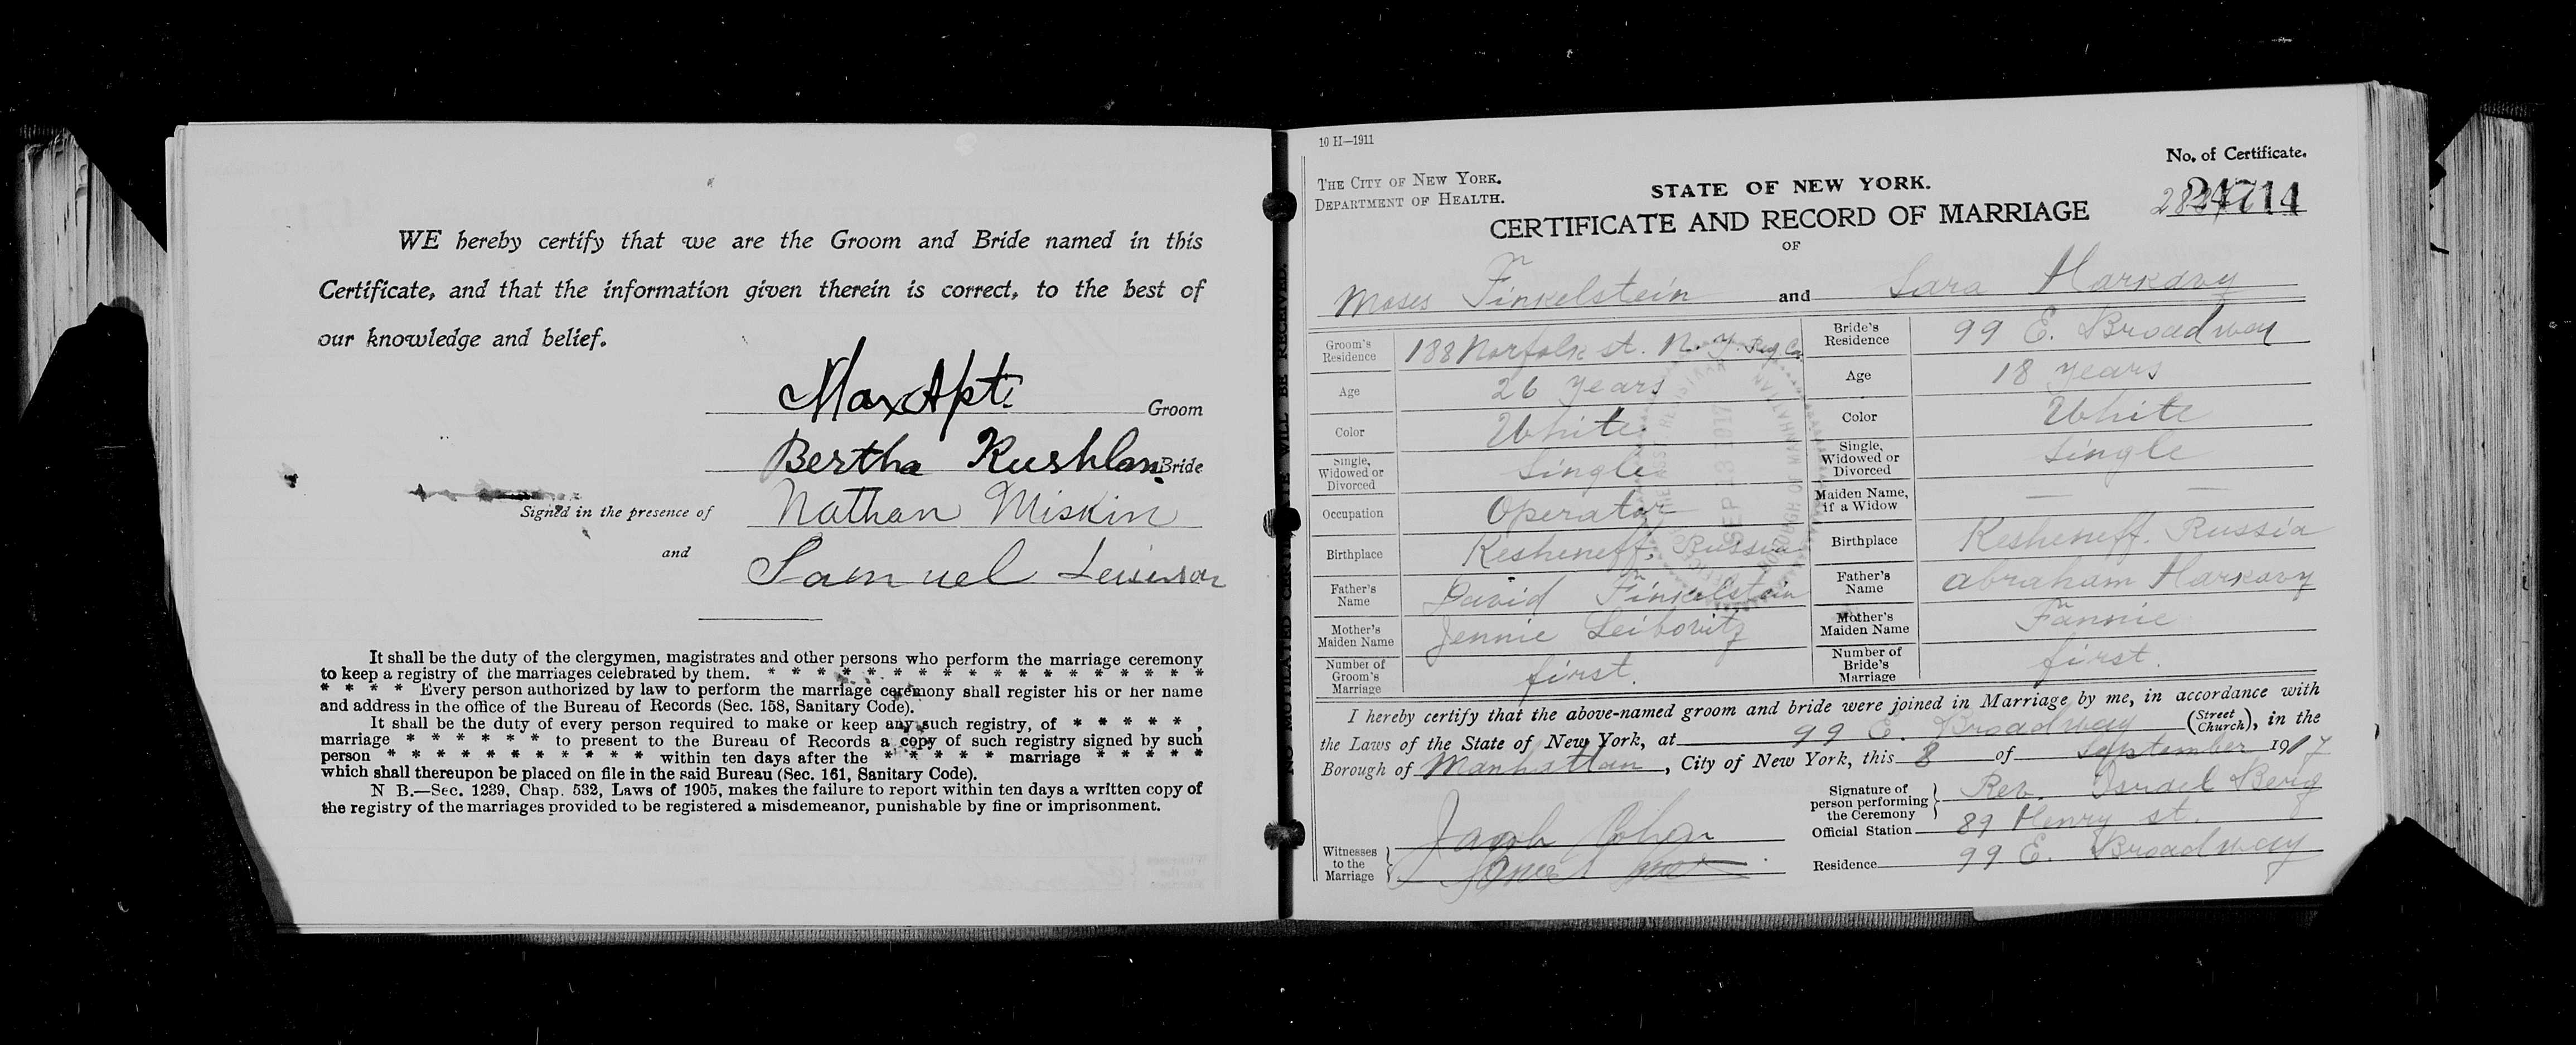 WE hereby certify that we are the Groom and Bride named in this
Certificate, and that the information given therein is correct, to the best of
our knowledge and belief.
Max Apt. Groom
Bertha Rushlan Bride
Signed in the presence of Nathan Miskin
and Samuel
It shall be the duty of the clergymen, magistrates and other persons who perform the marriage ceremony
to keep a registry of the marriages celebrated by them. * * * * * * * * * * * * * * * * * *
* * * * Every person authorized by law to perform the marriage ceremony shall register his or her name
and address in the office of the Bureau of Records (Sec. 158, Sanitary Code).
It shall be the duty of every person required to make or keep any such registry, of * * * * * ,
marriage * * * * * * to present to the Bureau of Records a copy of such registry signed by such
person * * * * * * * * * * * within ten days after the * * * * * marriage * * * * *
which shall thereupon be placed on file in the said Bureau (Sec. 161, Sanitary Code).
N B.—Sec. 1239, Chap. 532, Laws of 1905, makes the failure to report within ten days a written copy of
the registry of the marriages provided to be registered a misdemeanor, punishable by fine or imprisonment.
NO MUTILATED CERTIFICATE WILL BE RECEIVED.
10 H—1911
THE CITY OF NEW YORK.
DEPARTMENT OF HEALTH.
STATE OF NEW YORK.
CERTIFICATE AND RECORD OF MARRIAGE
OF
No. of Certificate.
24714
Moses Finkelstein and Sara Harkavy
Groom's Residence 188 Norfolk st. N. Y.
Bride's Residence 99 E. Broadway
Age 26 years
Age 18 years
Color White
Color White
Single, Widowed or Divorced Single
Single, Widowed or Divorced Single
Occupation Operator
Maiden Name, if a Widow — —
Birthplace Kesheneff. Russia
Birthplace Kesheneff. Russia
Father's Name David Finkelstein
Father's Name Abraham Harkavy
Mother's Maiden Name Jennie Leibovitz
Mother's Maiden Name Fannie
Number of Groom's Marriage first.
Number of Bride's Marriage first.
SEP 13 1917
I hereby certify that the above-named groom and bride were joined in Marriage by me, in accordance with
the Laws of the State of New York, at 99 E. Broadway (Street Church), in the
Borough of Manhattan, City of New York, this 8 of September 1917
Signature of person performing the Ceremony Rev. Israel Berig
Official Station 89 Henry st.
Residence 99 E. Broadway
Witnesses to the Marriage Jacob Cohen